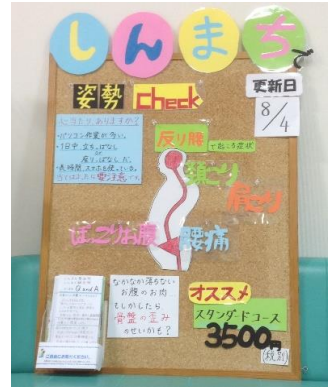 しんまちで
更新日
8/4
姿勢 Check
パソコン作業が多い。
1日中、立ちっぱなし
座りっぱなしだ。
長時間スマホを使っている。
反り腰で起こる症状
頸こり
肩こり
ぽっこりお腹
腰痛
なかなか落ちない
お腹のお肉
もしかしたら
骨盤の歪み
のせいかも？
オススメ
スタンダードコース
3500円
(税別)